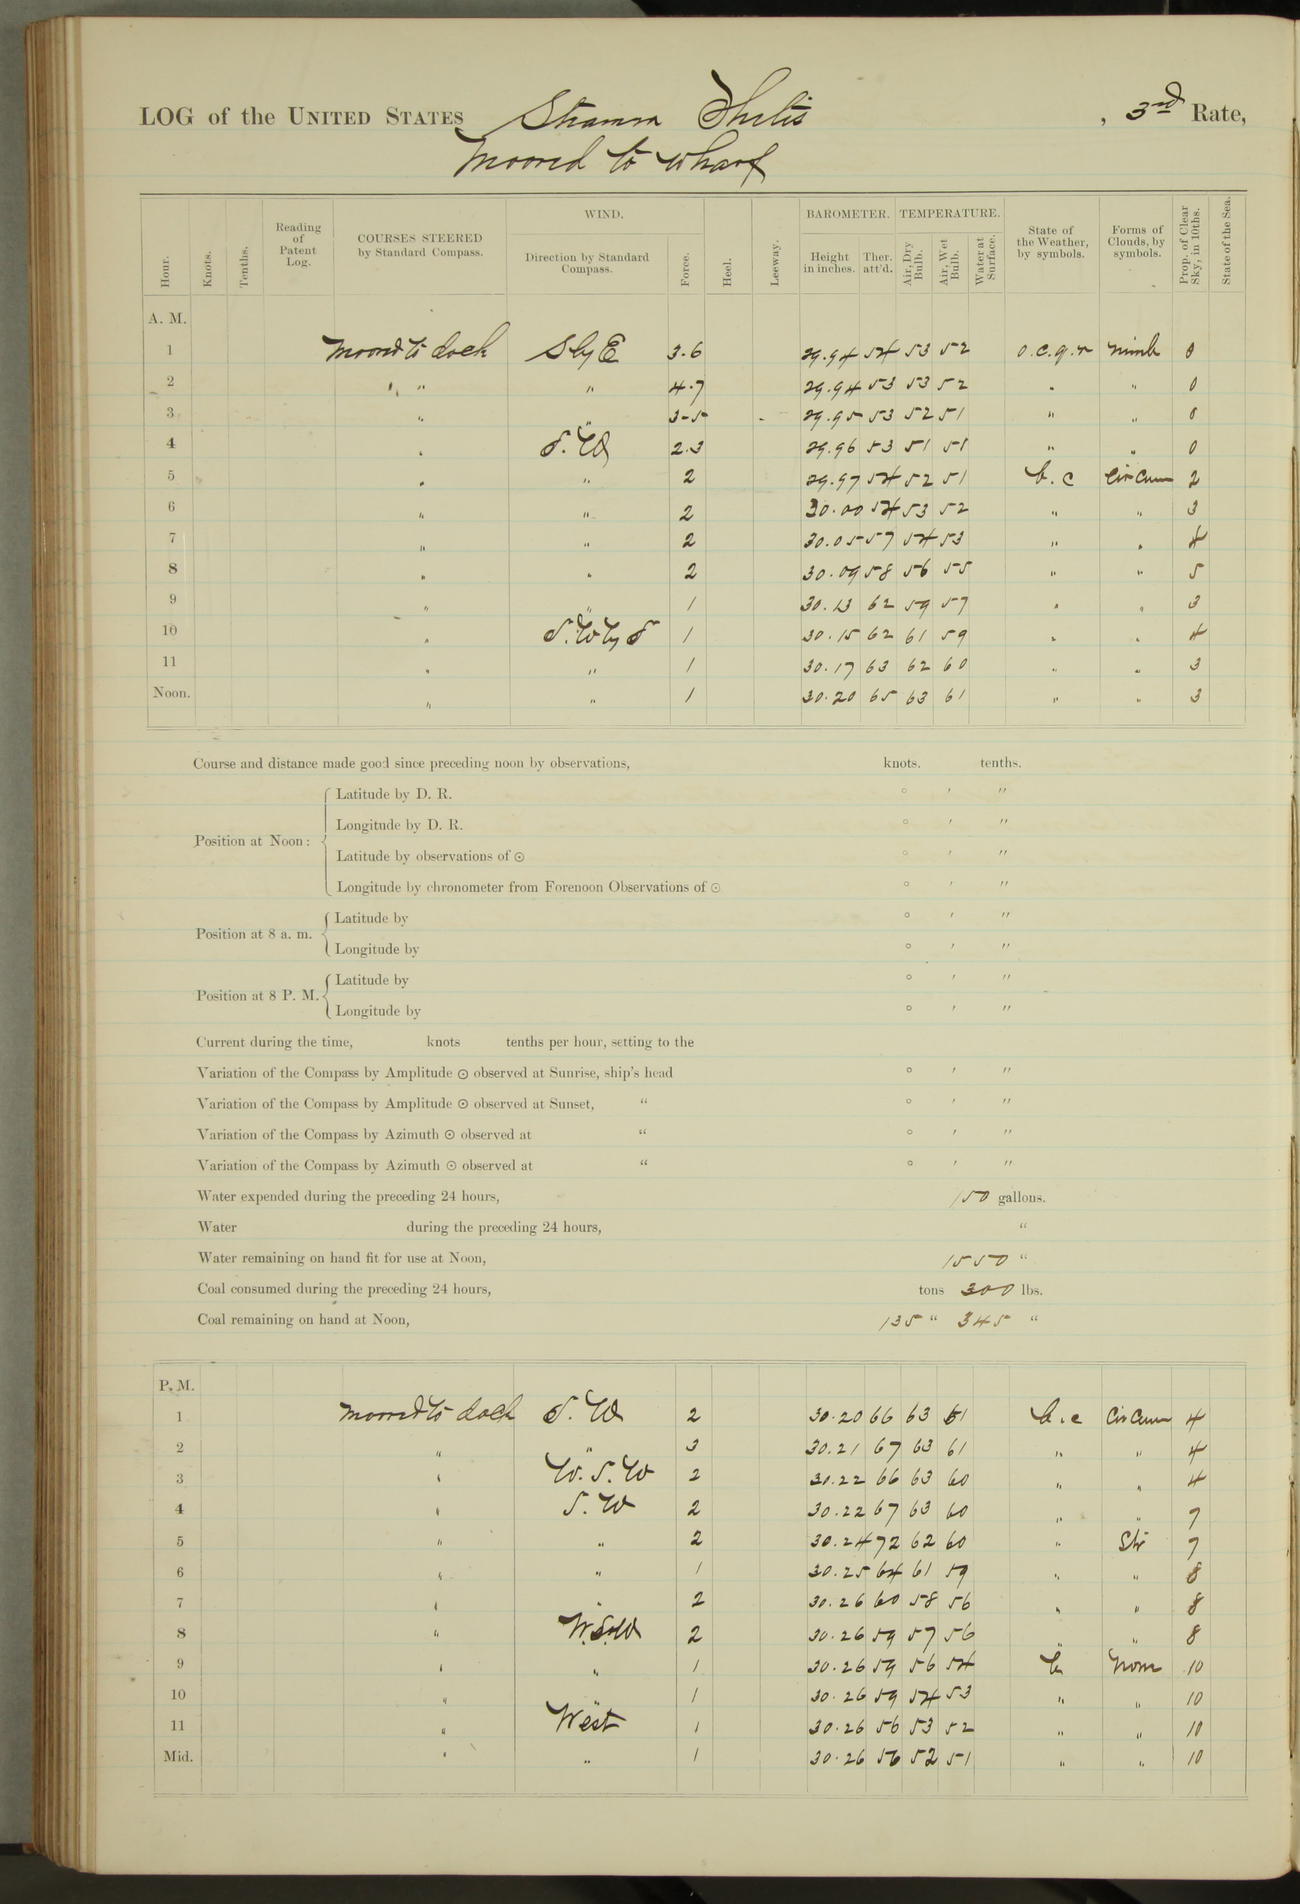 LOG of the UNITED STATES Steamer Thetis, 3rd Rate,
Moored to wharf
Hour. Knots. Tenths. Reading of Patent Log. COURSES STEERED by Standard Compass. WIND. Direction by Standard Compass. Force. Heel. Leeway. BAROMETER. Height in inches. Ther. att'd. TEMPERATURE. Air, Dry Bulb. Air, Wet Bulb. Water at Surface. State of the Weather, by symbols. Forms of Clouds, by symbols. Prop. of Clear Sky, in 10ths. State of the Sea.
A. M.
1 Moored to dock S by E 3.6 29.94 54 53 52 o.c.q.r nimb 0
2 " " " 4.7 29.94 53 53 52 " " 0
3 " " 3-5 29.95 53 52 51 " " 0
4 " S.W 2.3 29.96 53 51 51 " " 0
5 " " 2 29.97 54 52 51 b.c Cir Cum 2
6 " " 2 30.00 54 53 52 " " 3
7 " " 2 30.05 57 54 53 " " 4
8 " " 2 30.09 58 56 55 " " 5
9 " " 1 30.13 62 59 57 " " 3
10 " S.W by S 1 30.15 62 61 59 " " 4
11 " " 1 30.17 63 62 60 " " 3
Noon. " " 1 30.20 65 63 61 " " 3
Course and distance made good since preceding noon by observations, knots. tenths.
Position at Noon: Latitude by D. R. ° ′ ″
Longitude by D. R. ° ′ ″
Latitude by observations of ☉ ° ′ ″
Longitude by chronometer from Forenoon Observations of ☉ ° ′ ″
Position at 8 a. m. Latitude by ° ′ ″
Longitude by ° ′ ″
Position at 8 P. M. Latitude by ° ′ ″
Longitude by ° ′ ″
Current during the time, knots tenths per hour, setting to the
Variation of the Compass by Amplitude ☉ observed at Sunrise, ship's head ° ′ ″
Variation of the Compass by Amplitude ☉ observed at Sunset, " ° ′ ″
Variation of the Compass by Azimuth ☉ observed at " ° ′ ″
Variation of the Compass by Azimuth ☉ observed at " ° ′ ″
Water expended during the preceding 24 hours, 150 gallons.
Water during the preceding 24 hours, "
Water remaining on hand fit for use at Noon, 1550 "
Coal consumed during the preceding 24 hours, tons 300 lbs.
Coal remaining on hand at Noon, 135 " 345 "
P. M.
1 Moored to dock S. W 2 30.20 66 63 61 b.c Cir Cum 4
2 " " 3 30.21 67 63 61 " " 4
3 " W. S. W 2 30.22 66 63 60 " " 4
4 " S. W 2 30.22 67 63 60 " " 7
5 " " 2 30.24 72 62 60 " Str 7
6 " " 1 30.25 64 61 59 " " 8
7 " " 2 30.26 60 58 56 " " 8
8 " W.S.W 2 30.26 59 57 56 " " 8
9 " " 1 30.26 59 56 54 b None 10
10 " " 1 30.26 59 54 53 " " 10
11 " West 1 30.26 56 53 52 " " 10
Mid. " " 1 30.26 56 52 51 " " 10